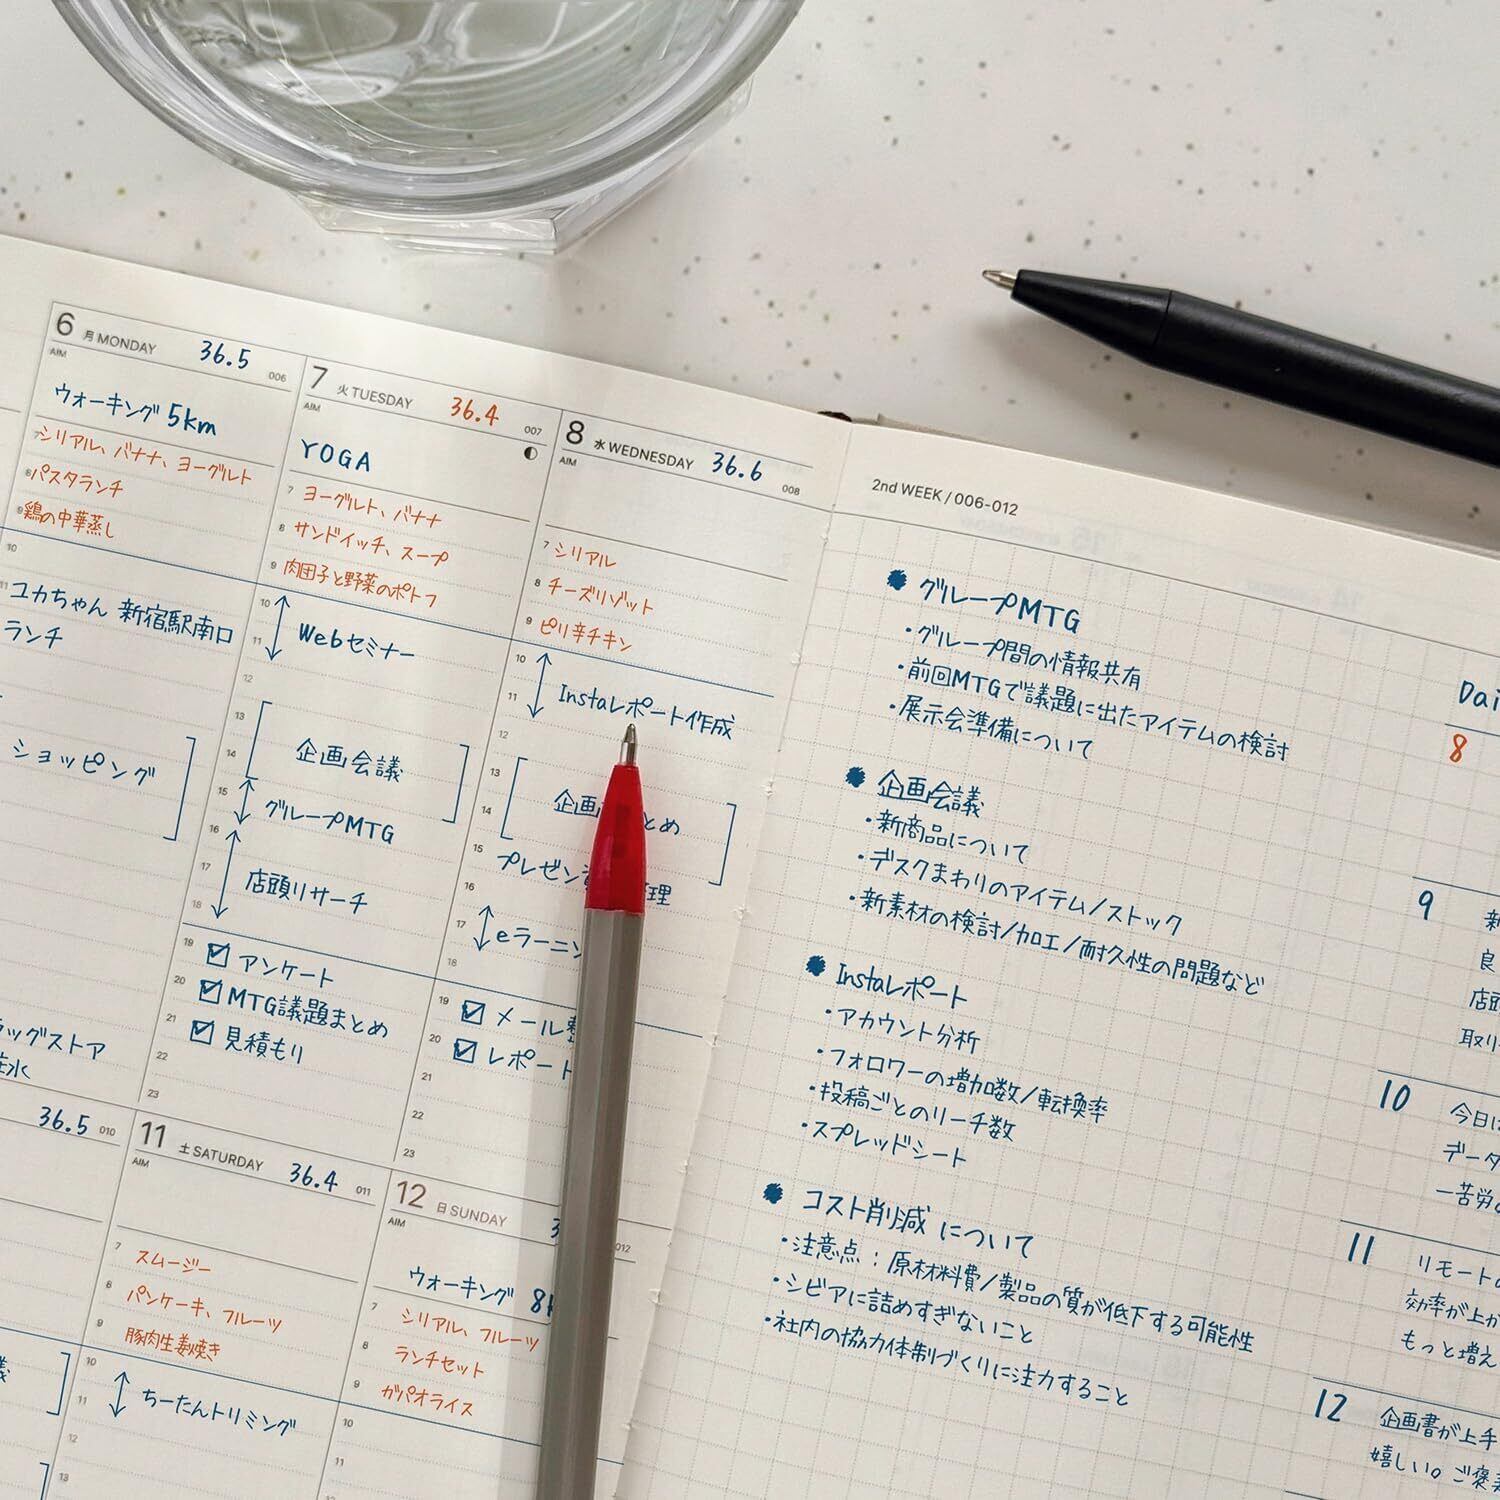 6 月 MONDAY 36.5 006
AIM
ウォーキング 5km
7 シリアル、バナナ、ヨーグルト
8 パスタランチ
9 鶏の中華蒸し
10
11 ユカちゃん 新宿駅南口
ランチ
ショッピング
ラッグストア
7 火 TUESDAY 36.4 007
AIM
YOGA
7 ヨーグルト、バナナ
8 サンドイッチ、スープ
9 肉団子と野菜のポトフ
10
11 Webセミナー
12
13
14 企画会議
15 グループMTG
16
17 店頭リサーチ
18
19 アンケート
20 MTG議題まとめ
21 見積もり
22
23
8 水 WEDNESDAY 36.6 008
AIM
7 シリアル
8 チーズリゾット
9 ピリ辛チキン
10
11 Instaレポート作成
12
13
14 企画 とめ
15 プレゼン 理
16
17 eラーニン
18
19 メール
20 レポート
21
22
23
36.5 010
11 土 SATURDAY 36.4 011
AIM
7 スムージー
8 パンケーキ、フルーツ
9 豚肉生姜焼き
10
11 ちーたんトリミング
12
13
12 日 SUNDAY 3 012
AIM
ウォーキング 8
7 シリアル、フルーツ
8 ランチセット
9 ガパオライス
10
11
2nd WEEK / 006-012
グループMTG
・グループ間の情報共有
・前回MTGで議題に出たアイテムの検討
・展示会準備について
企画会議
・新商品について
・デスクまわりのアイテム/ストック
・新素材の検討/加工/耐久性の問題など
Instaレポート
・アカウント分析
・フォロワーの増加数/転換率
・投稿ごとのリーチ数
・スプレッドシート
コスト削減について
・注意点：原材料費/製品の質が低下する可能性
・シビアに詰めすぎないこと
・社内の協力体制づくりに注力すること
Dai
8
9 新
良
店頭
取り
10 今日
データ
一苦労
11 リモート
効率が上が
もっと増え
12 企画書が上手
嬉しい。ご褒美